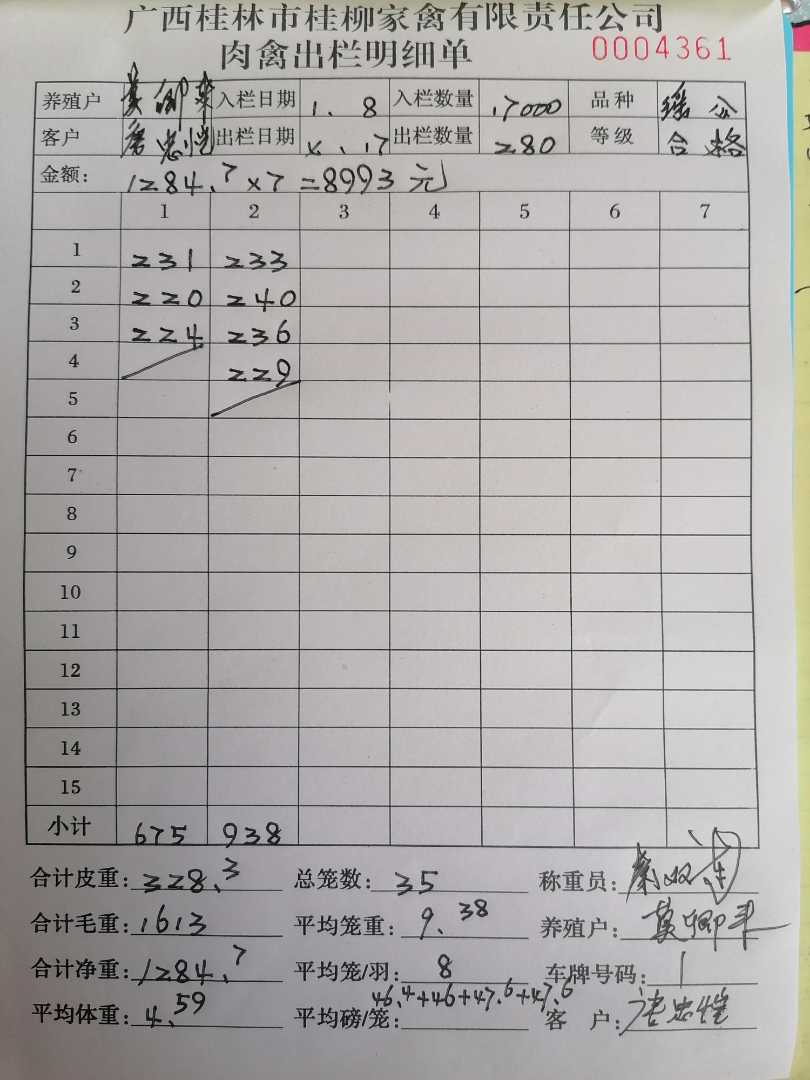 广西桂林市桂柳家禽有限责任公司
肉禽出栏明细单 0004361
养殖户 莫卿来 入栏日期 1.8 入栏数量 17000 品种 瑶公
客户 唐忠恺 出栏日期 4.17 出栏数量 280 等级 合格
金额: 1284.7×7=8993元
1 2 3 4 5 6 7
1 231 233
2 220 240
3 224 236
4 229
5
6
7
8
9
10
11
12
13
14
15
小计 675 938
合计皮重: 328.3 总笼数: 35 称重员:
合计毛重: 1613 平均笼重: 9.38 养殖户: 莫卿来
合计净重: 1284.7 平均笼/羽: 8 车牌号码: 1
平均体重: 4.59 平均磅/笼: 46.4+46+47.6+47.6 客户: 唐忠恺